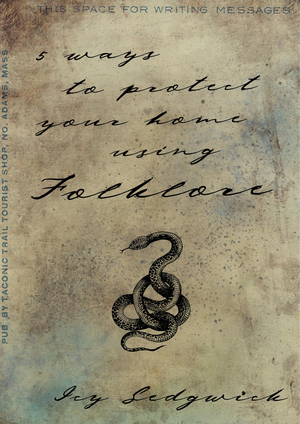 THIS SPACE FOR WRITING MESSAGES
5 ways
to protect
your home
using
Folklore
Icy Sedgwick
PUB. BY TACONIC TRAIL TOURIST SHOP, NO. ADAMS, MASS.